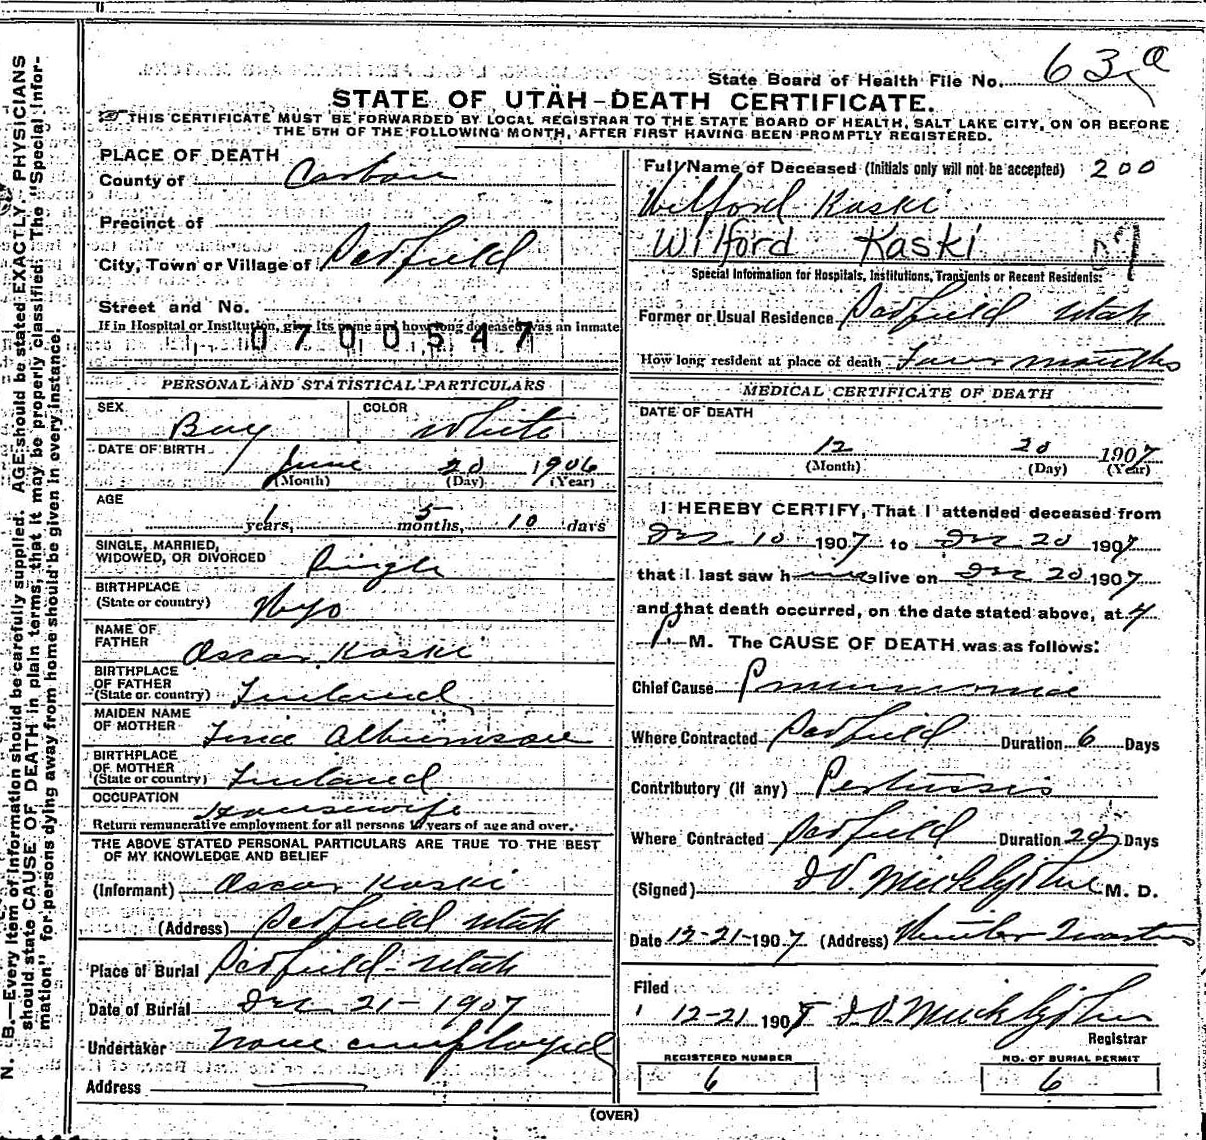 State Board of Health File No. 63 a
STATE OF UTAH-DEATH CERTIFICATE.
THIS CERTIFICATE MUST BE FORWARDED BY LOCAL REGISTRAR TO THE STATE BOARD OF HEALTH, SALT LAKE CITY, ON OR BEFORE
THE 5TH OF THE FOLLOWING MONTH, AFTER FIRST HAVING BEEN PROMPTLY REGISTERED.
PLACE OF DEATH
County of Carbon
Precinct of
City, Town or Village of Scofield
Street and No.
If in Hospital or Institution, give its name and how long deceased was an inmate
0700547
PERSONAL AND STATISTICAL PARTICULARS
SEX Boy COLOR White
DATE OF BIRTH June 20 1906
(Month) (Day) (Year)
AGE
1 years, 5 months, 10 days
SINGLE, MARRIED,
WIDOWED, OR DIVORCED Single
BIRTHPLACE
(State or country) Wyo
NAME OF
FATHER Oscar Kaski
BIRTHPLACE
OF FATHER
(State or country) Finland
MAIDEN NAME
OF MOTHER
BIRTHPLACE
OF MOTHER
(State or country) Finland
OCCUPATION Housewife
Return remunerative employment for all persons 10 years of age and over.
THE ABOVE STATED PERSONAL PARTICULARS ARE TRUE TO THE BEST
OF MY KNOWLEDGE AND BELIEF
(Informant) Oscar Kaski
(Address) Scofield Utah
Place of Burial Scofield - Utah
Date of Burial Dec 21 - 1907
Undertaker None employed
Address
Full Name of Deceased (Initials only will not be accepted) 200
Wilford Kaski
Wilford Kaski
Special Information for Hospitals, Institutions, Transients or Recent Residents:
Former or Usual Residence Scofield Utah
How long resident at place of death Four months
MEDICAL CERTIFICATE OF DEATH
DATE OF DEATH
12 20 1907
(Month) (Day) (Year)
I HEREBY CERTIFY, That I attended deceased from
Dec 10 1907 to Dec 20 1907
that I last saw h alive on Dec 20 1907
and that death occurred, on the date stated above, at 4
P M. The CAUSE OF DEATH was as follows:
Chief Cause Pneumonia
Where Contracted Scofield Duration 6 Days
Contributory (if any) Pertussis
Where Contracted Scofield Duration 20 Days
(Signed) M. D.
Date 12-21-1907 (Address) Winter Quarters
Filed
12-21 1907
Registrar
REGISTERED NUMBER NO. OF BURIAL PERMIT
6 6
(OVER)
N. B.—Every item of information should be carefully supplied. AGE should be stated EXACTLY. PHYSICIANS
should state CAUSE OF DEATH in plain terms, that it may be properly classified. The "Special Infor-
mation" for persons dying away from home should be given in every instance.